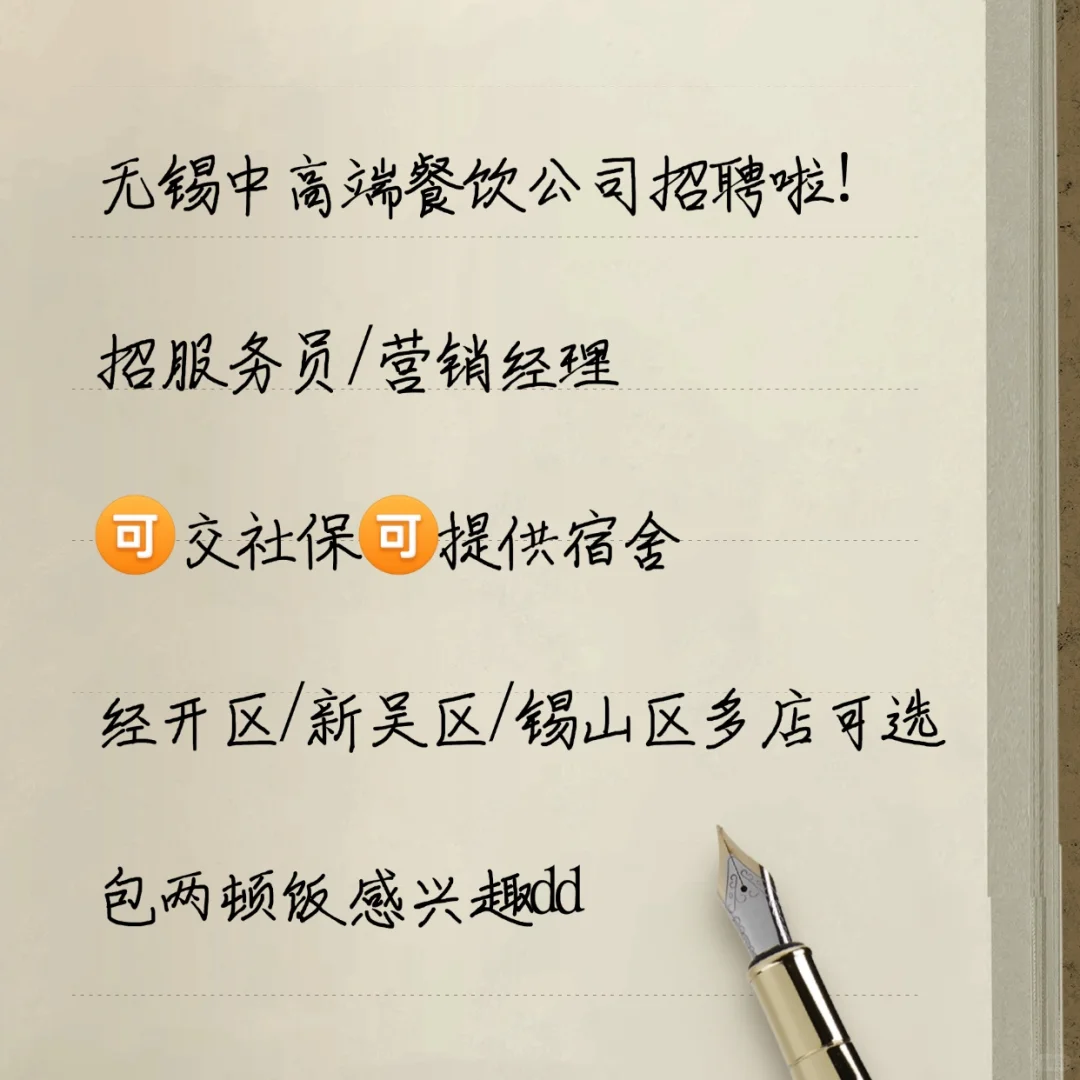 无锡中高端餐饮公司招聘啦!
招服务员/营销经理
🉑交社保🉑提供宿舍
经开区/新吴区/锡山区多店可选
包两顿饭感兴趣dd